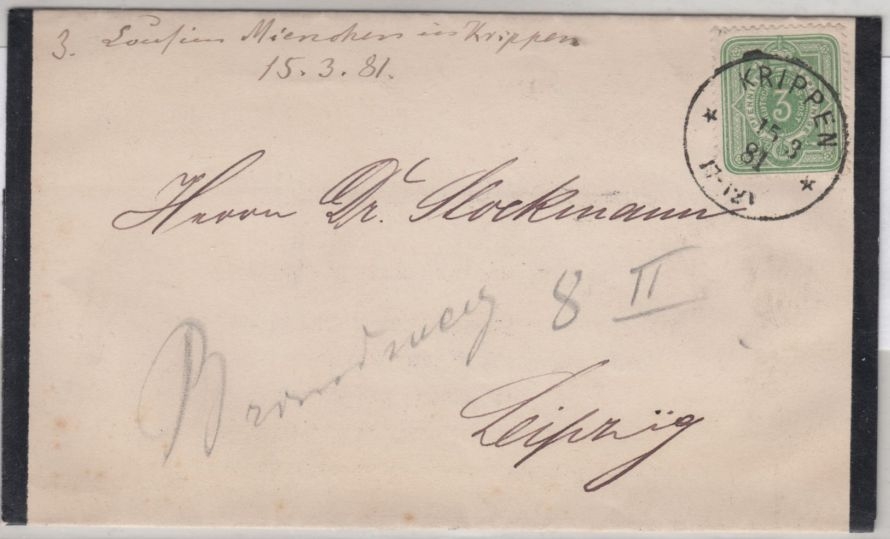 3. Cousine Mienchen in Krippen
15.3.81.
3
KRIPPEN
15 3
81
11-12V
Herrn Dr. Stockmann
Brandweg 8 II
Leipzig